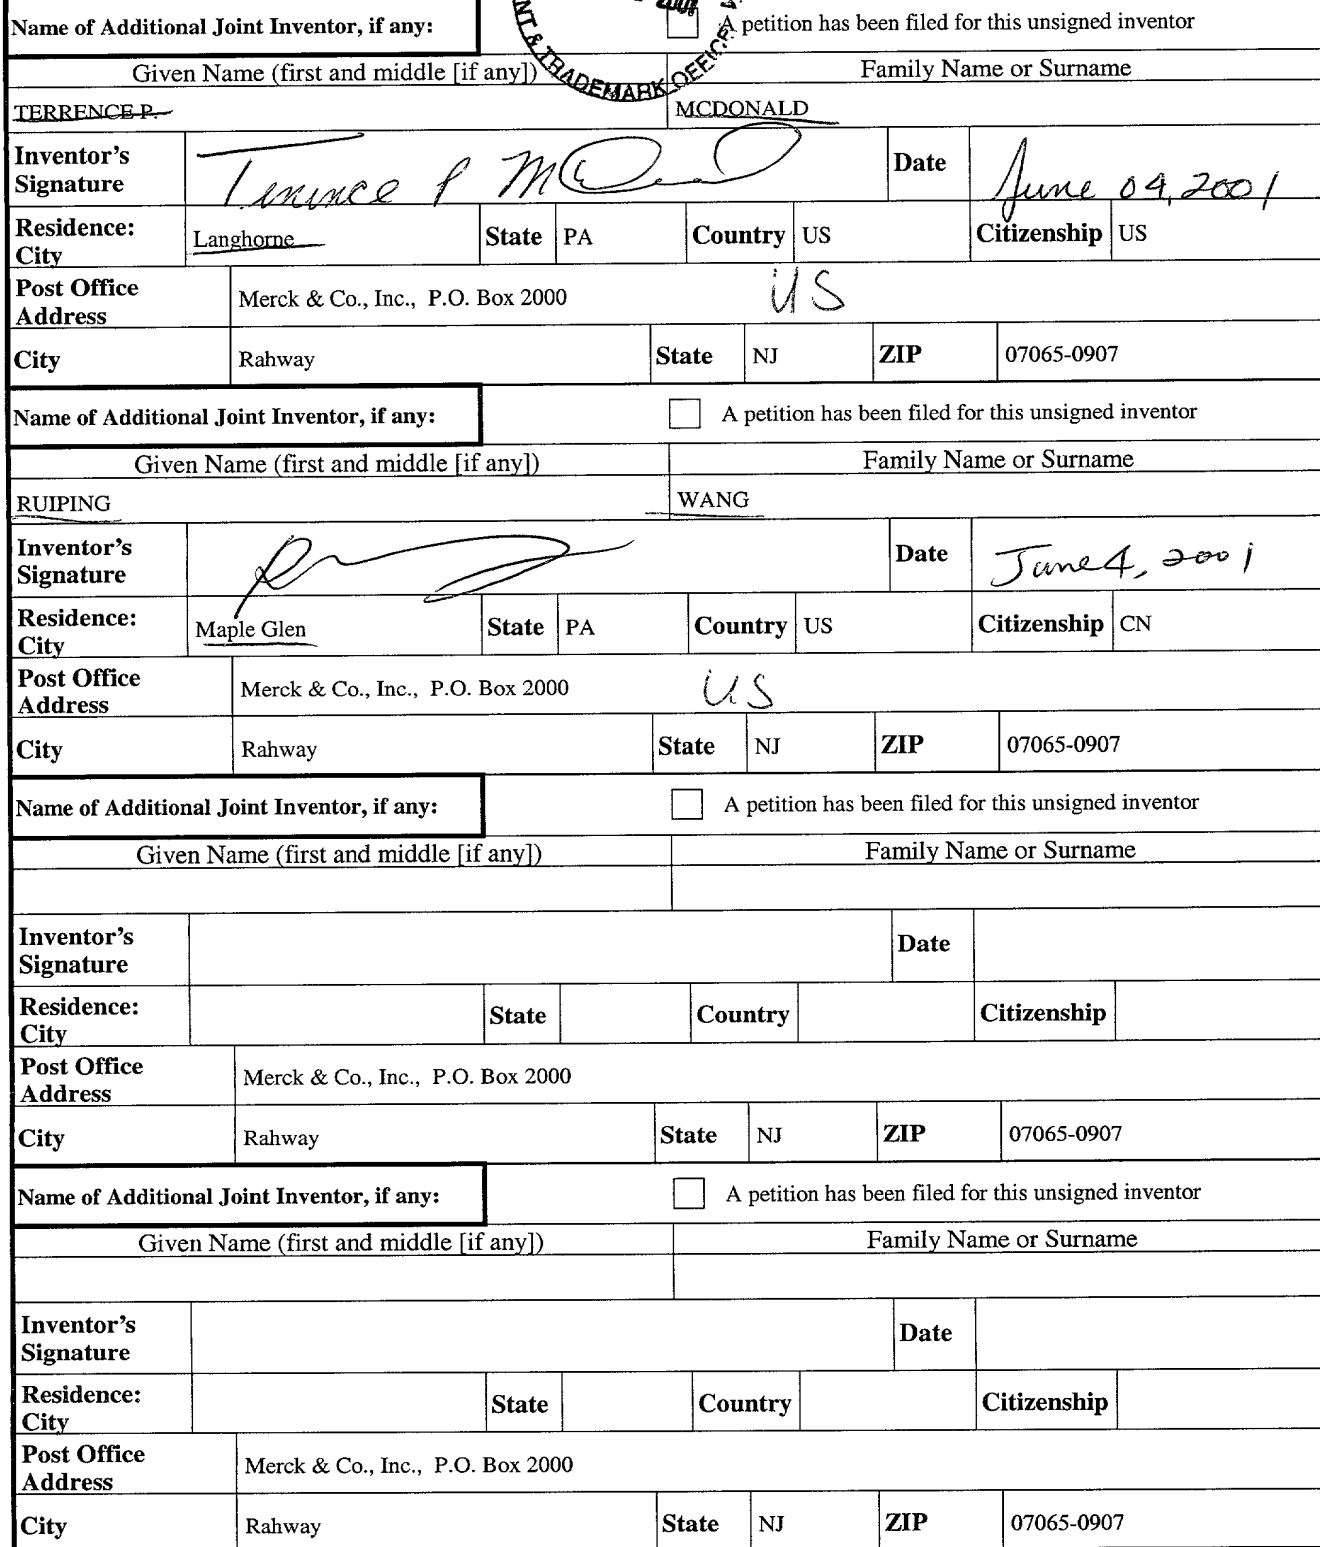 Name of Additional Joint Inventor, if any: A petition has been filed for this unsigned inventor
NT & TRADEMARK OFFICE
2001
Given Name (first and middle [if any]) Family Name or Surname
TERRENCE P. MCDONALD
Inventor's Signature Terrence P McDonald Date June 04, 2001
Residence: City Langhorne State PA Country US Citizenship US
Post Office Address Merck & Co., Inc., P.O. Box 2000 US
City Rahway State NJ ZIP 07065-0907
Name of Additional Joint Inventor, if any: A petition has been filed for this unsigned inventor
Given Name (first and middle [if any]) Family Name or Surname
RUIPING WANG
Inventor's Signature Date June 4, 2001
Residence: City Maple Glen State PA Country US Citizenship CN
Post Office Address Merck & Co., Inc., P.O. Box 2000 US
City Rahway State NJ ZIP 07065-0907
Name of Additional Joint Inventor, if any: A petition has been filed for this unsigned inventor
Given Name (first and middle [if any]) Family Name or Surname
Inventor's Signature Date
Residence: City State Country Citizenship
Post Office Address Merck & Co., Inc., P.O. Box 2000
City Rahway State NJ ZIP 07065-0907
Name of Additional Joint Inventor, if any: A petition has been filed for this unsigned inventor
Given Name (first and middle [if any]) Family Name or Surname
Inventor's Signature Date
Residence: City State Country Citizenship
Post Office Address Merck & Co., Inc., P.O. Box 2000
City Rahway State NJ ZIP 07065-0907